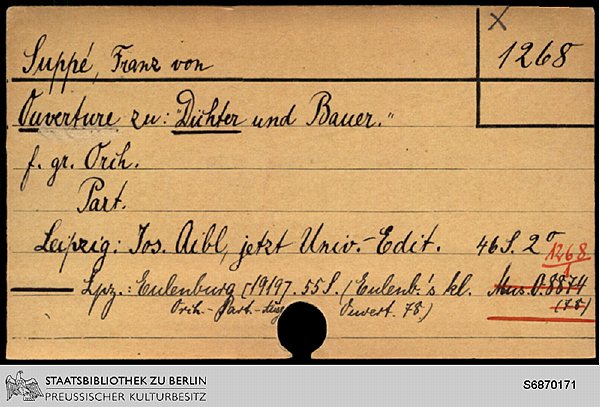 X
1268
Suppé, Franz von
Ouverture zu: "Dichter und Bauer."
f. gr. Orch.
Part.
Leipzig: Jos. Aibl, jetzt Univ.-Edit. 46 S. 2°
1268
Lpz.: Eulenburg [1919]. 55 S. (Eulenb.'s kl. Mus. O. 8874
Orch.-Part.-Ausg. Ouvert. 78) (78)
STAATSBIBLIOTHEK ZU BERLIN
PREUSSISCHER KULTURBESITZ
S6870171